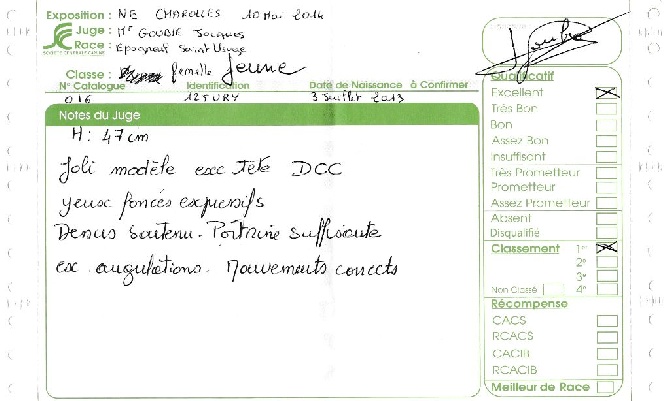 Exposition : NE CHAROLLES 10 Mai 2014
Juge : Mr GOUBIE Jacques
Race : Epagneul Saint Usuge
SOCIETE CENTRALE CANINE
Classe : femelle Jeune
N° Catalogue Identification Date de Naissance à Confirmer
016 125URY 3 Juillet 2013
Notes du Juge
H: 47 cm
Joli modèle exc tête DCC
yeux foncés expressifs
Dessus soutenu. Poitrine suffisante
ex. angulations. Mouvements corrects
Qualificatif
Excellent
Très Bon
Bon
Assez Bon
Insuffisant
Très Prometteur
Prometteur
Assez Prometteur
Absent
Disqualifié
Classement 1er
2e
3e
Non Classé 4e
Récompense
CACS
RCACS
CACIB
RCACIB
Meilleur de Race